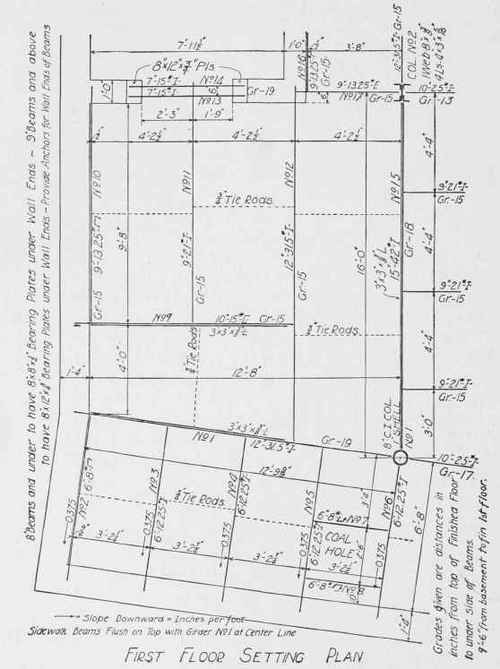 7'-11½"
1'-0"
3'-8"
8"x12"x¾" Pls
7"-15#-I
No14
7"-15#-I
No13
Gr-19
No16
9"-13.25#
Gr-15
10"-31.5#-I Gr-15
COL. No2
1Web 8"x⅜"
9"-13.25#-I
No17
Gr-15
10"-25#-I
Gr-13
1'-0"
2'-3"
1'-9"
4'-2½"
4'-2½"
4'-2½"
No10
9"-13.25#
Gr-15
9'-8"
No11
9"-21#-I
Gr-15
No12
12"-31.5#-I
Gr-15
¾" Tie Rods
16'-0"
No15
15"-42#-I
Gr-18
4'-4"
9"-21#-I
Gr-15
4'-4"
9"-21#-I
Gr-15
4'-4"
9"-21#-I
Gr-15
3'-0"
No9
10"-15#-I
Gr-15
¾" Tie Rods
¾" Tie Rods
4'-0"
1'-4"
12'-8"
8" C I COL.
SHELL
No1
10"-25#-I
Gr-17
No1
12"-31.5#-I
Gr-19
No2
6'-8"
0.375
No3
6"-12.25#-I
0.375
¾" Tie Rods
No4
6"-12.25#-I
0.375
No5
6"-12.25#-I
0.375
6"-8#-I No7
COAL
HOLE
No6
6"-12.25#-I
0.375
6'-8"
3'-2½"
3'-2½"
3'-2½"
3'-2½"
1'-4"
8"Beams and under to have 8"x8"x¾" Bearing Plates under Wall Ends - 9"Beams and above
to have 8"x12"x¾" Bearing Plates under Wall Ends - Provide Anchors for Wall Ends of Beams
Grades given are distances in
inches from top of Finished Floor
to under side of Beams.
9'-6" from basement to fin. 1st floor.
Slope Downward = Inches per foot
Sidewalk Beams Flush on Top with Girder No1 at Center Line
FIRST FLOOR SETTING PLAN